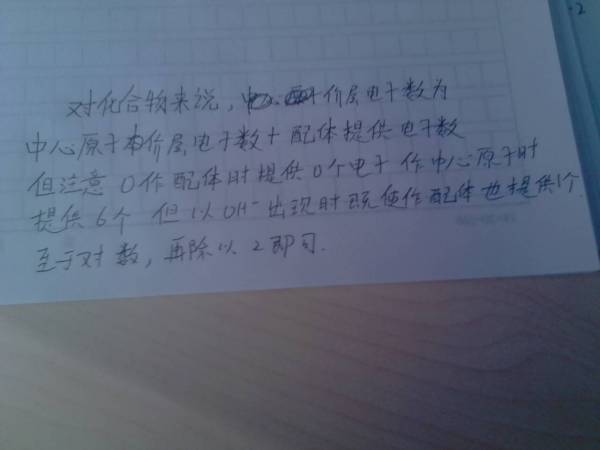 对化合物来说，价层电子数为
中心原子本价层电子数+配体提供电子数
但注意 O作配体时提供0个电子 作中心原子时
提供6个 但以OH⁻出现时既使作配体也提供1个
至于对数，再除以2即可.